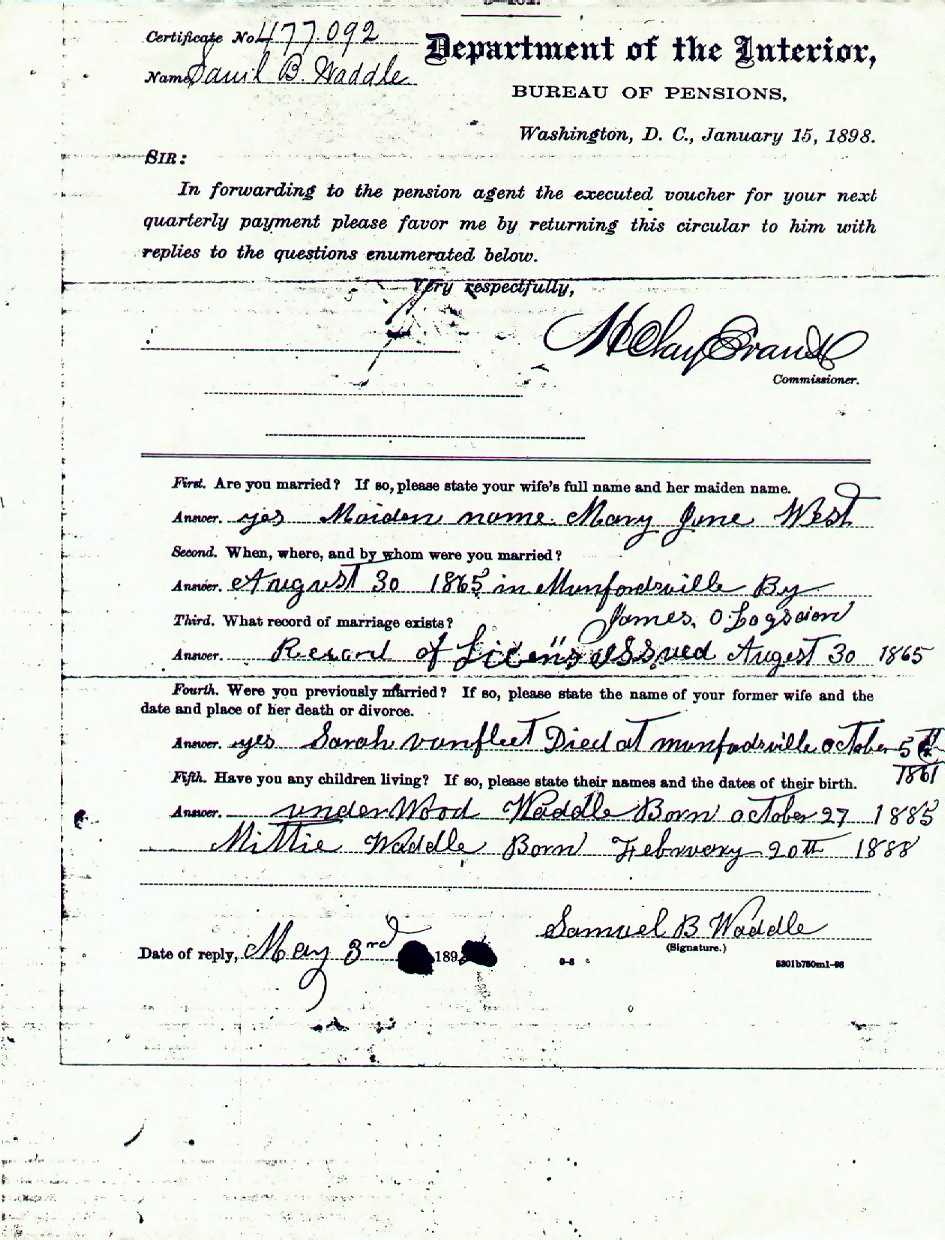 Certificate No. 477,092
Department of the Interior,
Name, Saml B. Waddle
BUREAU OF PENSIONS,
Washington, D. C., January 15, 1898.
SIR:
In forwarding to the pension agent the executed voucher for your next
quarterly payment please favor me by returning this circular to him with
replies to the questions enumerated below.
Very respectfully,
H Clay Evans
Commissioner.
First. Are you married? If so, please state your wife's full name and her maiden name.
Answer. yes Maiden name. Mary Jane West
Second. When, where, and by whom were you married?
Answer. August 30 1865 in Munfordsville By
James. O Logsdon
Third. What record of marriage exists?
Answer. Record of Licens iSSued August 30 1865
Fourth. Were you previously married? If so, please state the name of your former wife and the
date and place of her death or divorce.
Answer. yes Sarah vanfleet Died at munfordsville october 5
1861
Fifth. Have you any children living? If so, please state their names and the dates of their birth.
Answer. underWood Waddle Born october 27 1885
Mittie Waddle Born February 20th 1888
Samuel B Waddle
(Signature.)
Date of reply, May 3rd 189
5301b750m1-98